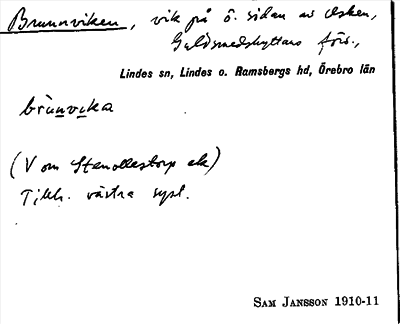 Brunnviken, vik på ö. sidan av Åsken,
Guldsmedshyttans förs.,
Lindes sn, Lindes o. Ramsbergs hd, Örebro län
brùnvika
(V om Stenollestorp ek)
Tillh. västra syst.
SAM JANSSON 1910-11